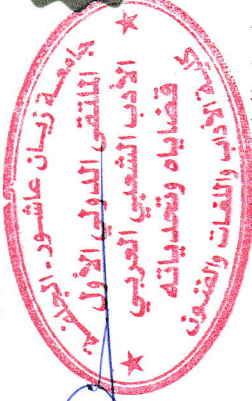 جامعة زيان عاشور - الجلفة
الملتقى الدولي الأول
الأدب الشعبي العربي
قضاياه وتحدياته
كلية الآداب واللغات والفنون